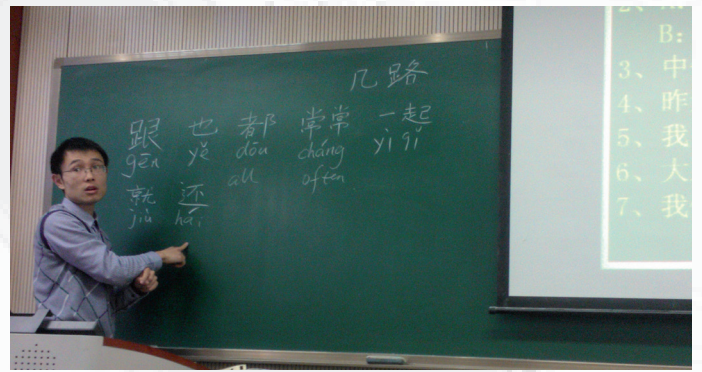 几路
跟 也 都 常常 一起
gēn yě dōu cháng yì qǐ
all often
就 还
jiù hái
B:
3、中
4、昨
5、我
6、大
7、我